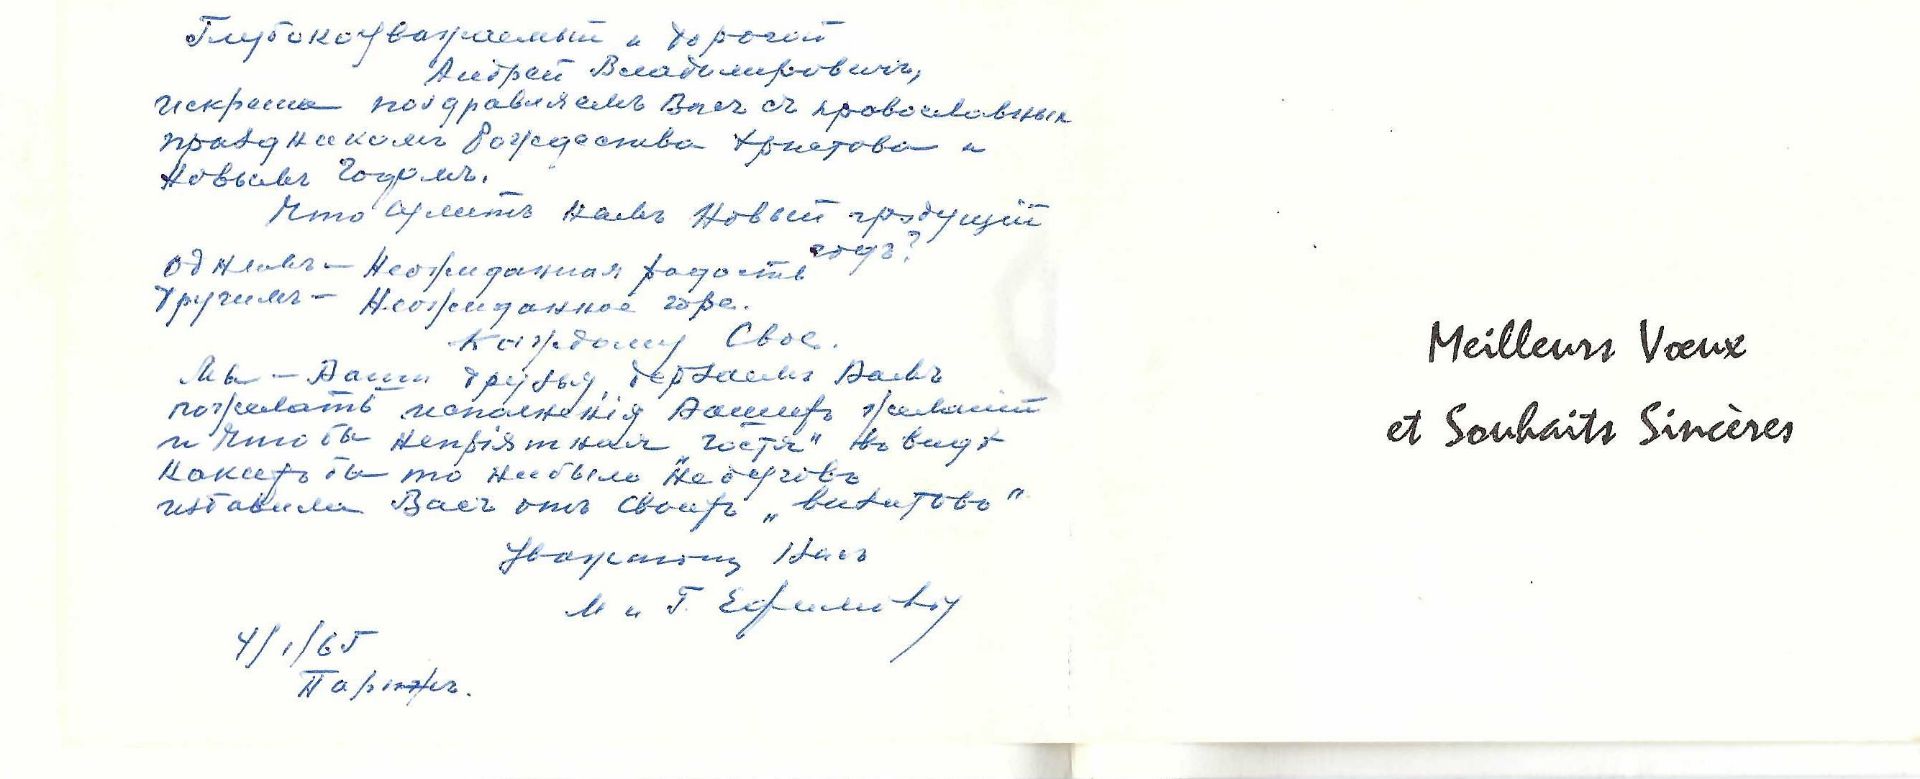 Глубокоуважаемый и дорогой
Андрей Владимирович,
искренне поздравляемъ Васъ съ православнымъ
праздникомъ Рождества Христова и
Новымъ Годомъ.
Что сулитъ намъ Новый грядущій
годъ?
Однимъ – Неожиданная радость
Другимъ – Неожиданное горе.
Каждому Свое.
Мы – Ваши друзья, дерзаемъ Вамъ
пожелать исполненія Вашихъ желаній
и чтобы непріятная „гостя" въ видѣ
какихъ бы то нибыло недуговъ
избавила Васъ отъ своихъ „визитовъ"
Уважающіе Васъ
М и Г. Ефимовы
4/1/65
Парижъ.
Meilleurs Vœux
et Souhaits Sincères